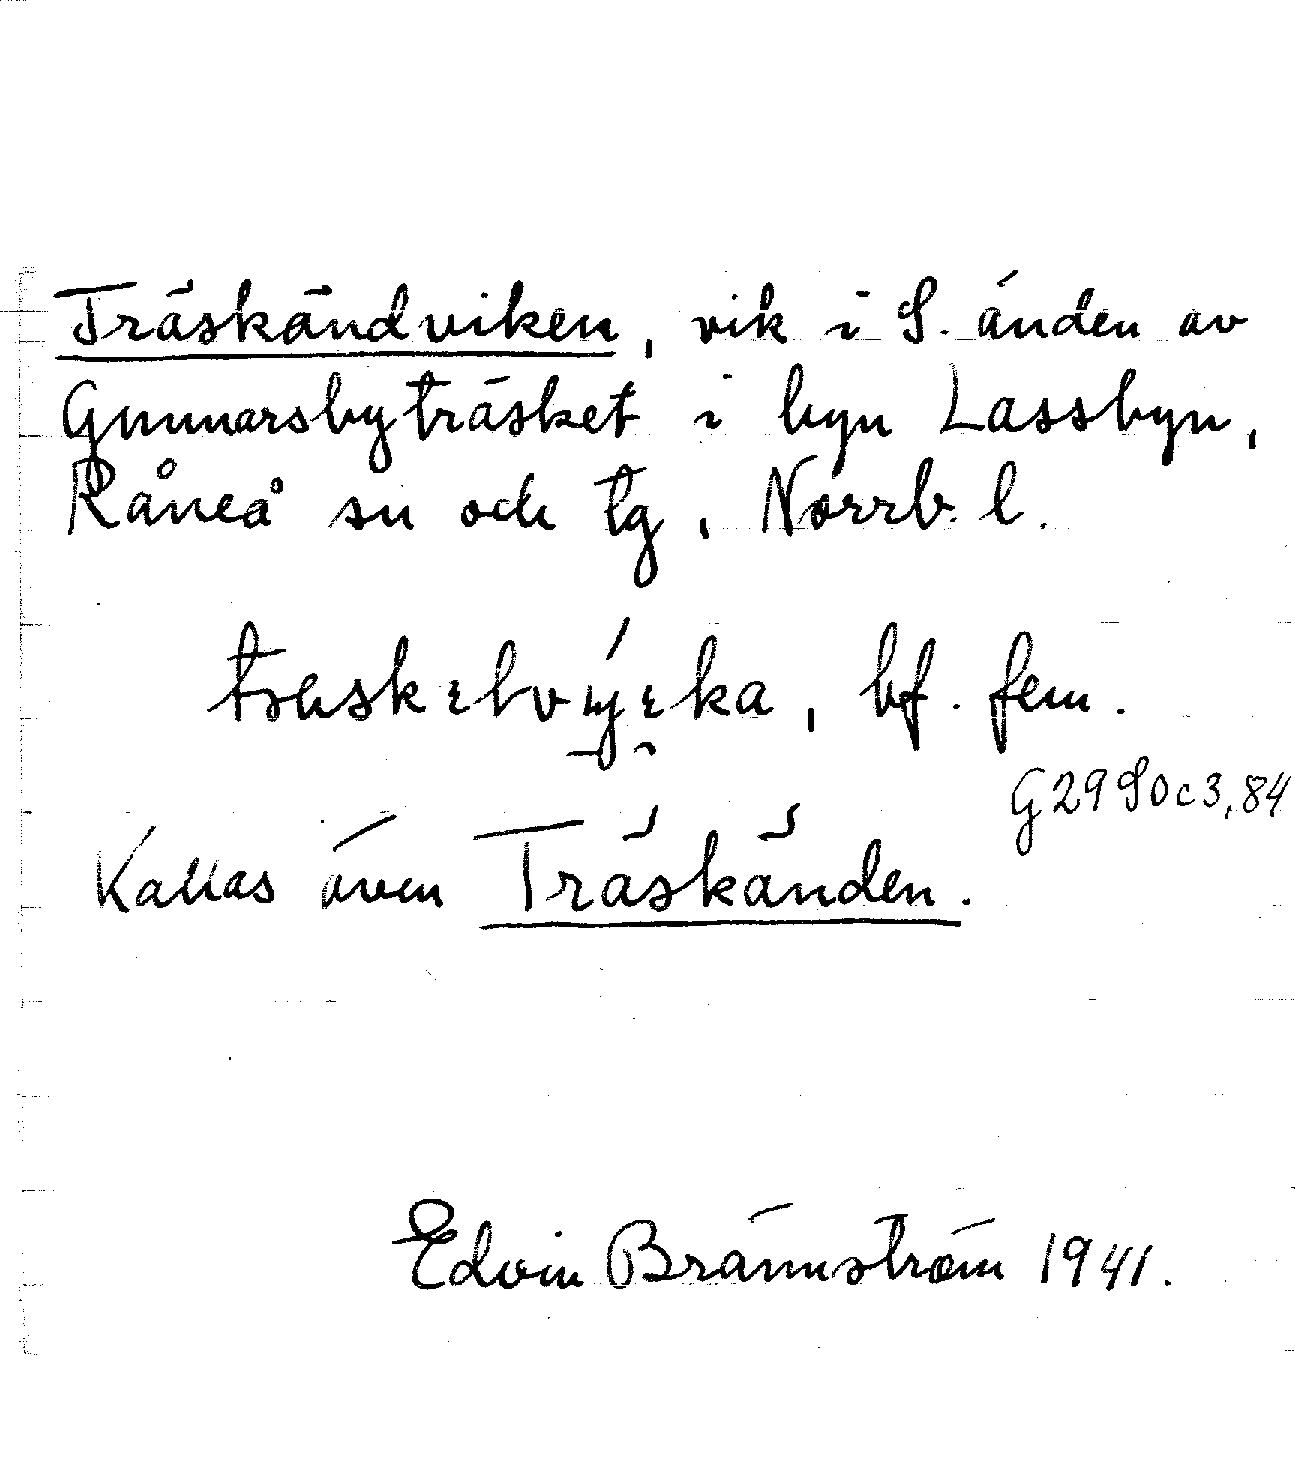 Träskändviken, vik i S. änden av
Gunnarsbyträsket i byn Lassbyn,
Råneå sn och tg, Norrb. l.
bf. fem.
G 29 SO c 3, 84
Kallas även Träskänden.
Edvin Brännström 1941.